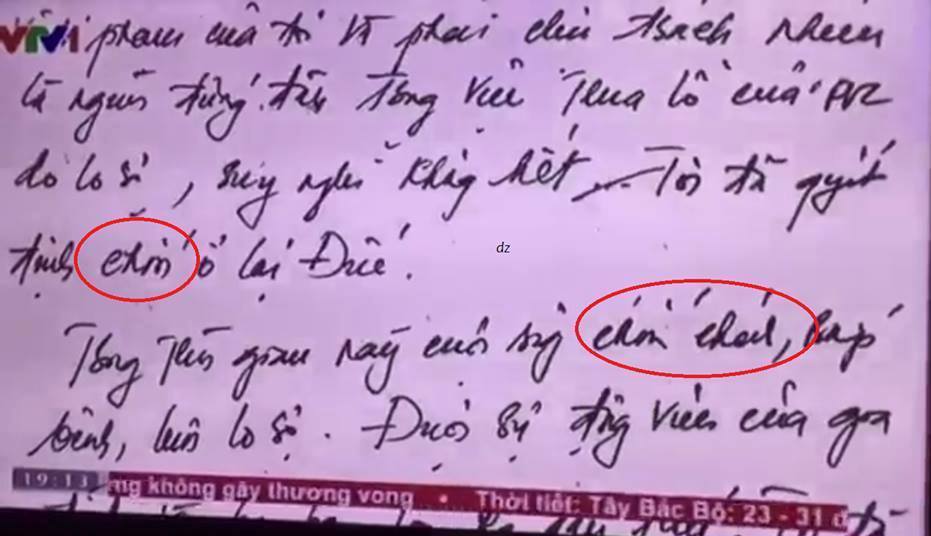 VTV1 phạm của tôi và phải chịu trách nhiệm
là người đứng đầu trong việc thua lỗ của PVC
do lo sợ, suy nghĩ không hết, Tôi đã quyết
định trốn ở lại Đức.
dz
Trong thời gian này cuộc sống chốn chánh,
bênh, luôn lo sợ. Được sự động viên của gia
19:13 ng không gây thương vong • Thời tiết: Tây Bắc Bộ: 23 - 31 đ